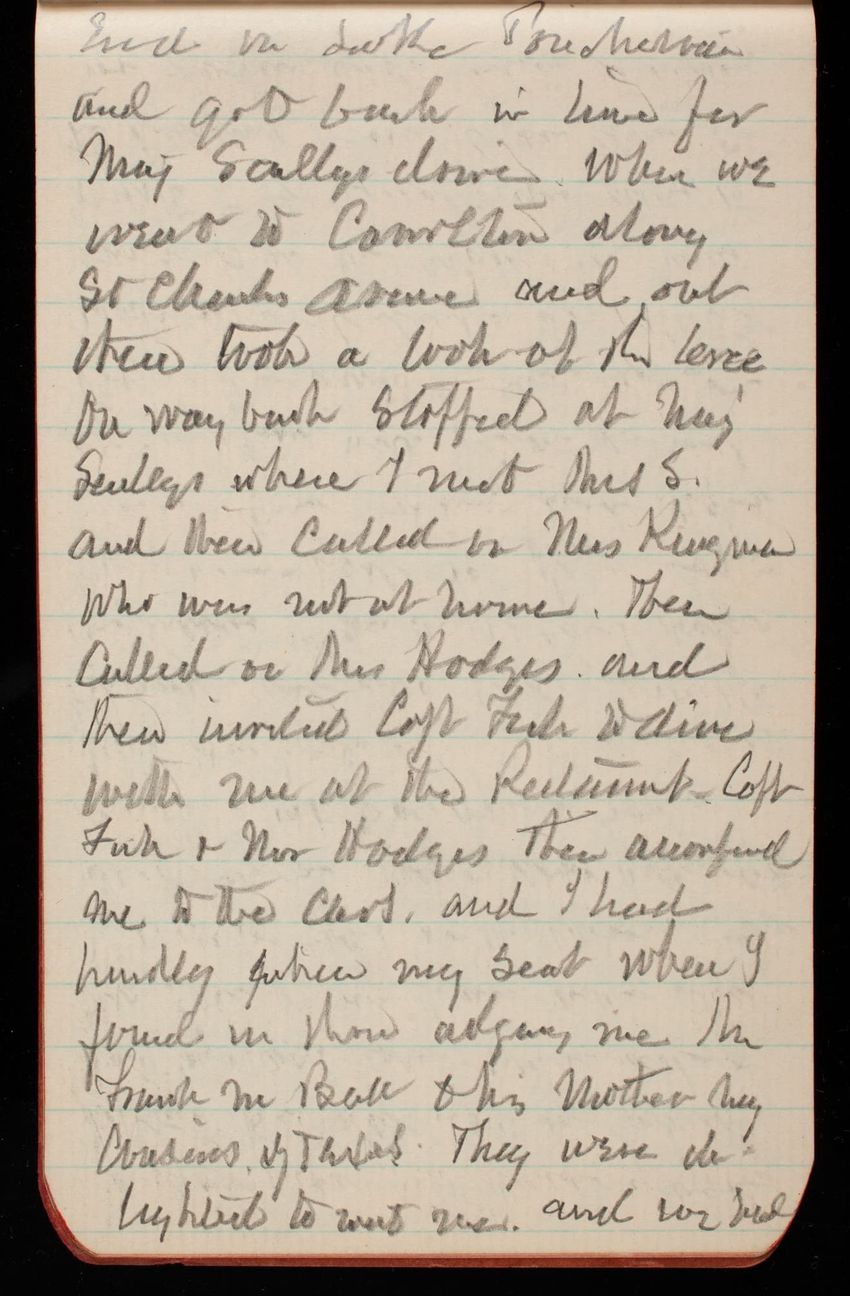 End on Lake Ponchetrain
and got back in time for
Maj Scullys drive. When we
went to Carrolton along
St Charles Avenue and out
then took a look at the levee
On way back stopped at Maj
Scullys where I met Mrs S.
and then called on Mrs Kingman
who was not at home. Then
Called on Mrs Hodges. and
then invited Capt Fisk to dine
with me at the Restaurant. Capt
Fisk & Mrs Hodges then accompd
me to the cars. and I had
hardly taken my seat when I
found in those me Mr
Frank M Ball & his Mother my
Cousins of Texas. They were de-
lighted to meet me. and we had